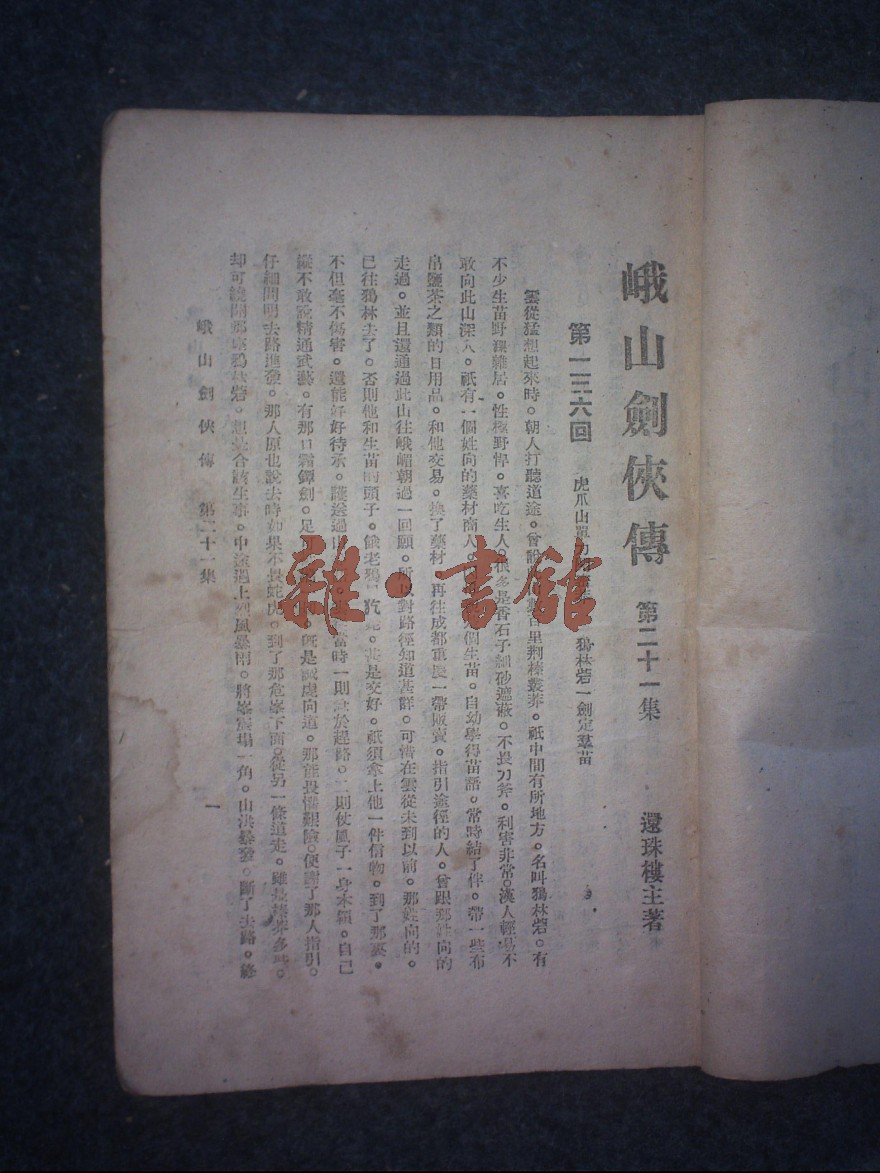 峨山劍俠傳 第二十一集 還珠樓主著
第一三六回 虎爪山單 鴉林砦一劍定羣苗
雲從猛想起來時。朝人打聽道途。曾說 百里荆榛叢莽。祇中間有所地方。名叫鴉林砦。有
不少生苗野猓雜居。性極野悍。喜吃生人。很多是香石子細砂遮蔽。不畏刀斧。利害非常。漢人輕易不
敢向此山深入。祇有一個姓向的藥材商人。 個生苗。自幼學得苗語。常時結了伴。帶一些布
帛鹽茶之類的日用品。和他交易。換了藥材。再往成都重慶一帶販賣。指引途徑的人。曾跟那姓向的
走過。並且還通過此山往峨嵋朝過一回頂。所以對路徑知道甚詳。可惜在雲從未到以前。那姓向的。
已往鴉林去了。否則他和生苗的頭子。餓老鴉 是交好。祇須拿上他一件信物。到了那裏。
不但毫不傷害。還能好好待承。護送過山 當時一則急於趕路。二則仗風子一身本領。自己
縱不敢說精通武藝。有那口霜鐔劍。足可 旣是誠虔向道。那能畏懼艱險。便謝了那人指引。
仔細問明去路進發。那人原也說去時如果不畏蛇虎。到了那危峯下面。從另一條道走。雖是榛莽多些。
却可繞開那座鴉林砦。想是合該生事。中途遇上烈風暴雨。將峯震塌一角。山洪暴發。斷了去路。終
峨山劍俠傳 第二十一集 一
雜·書館